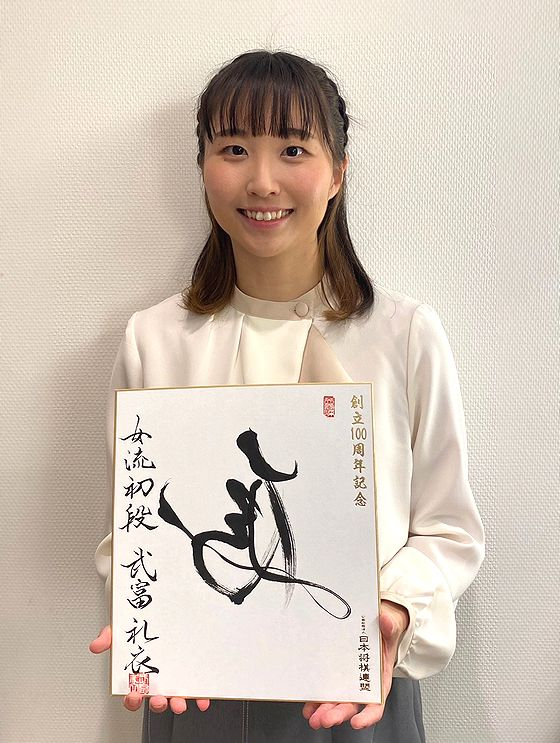 創立100周年記念
公益社団法人
日本将棋連盟
女流初段 武富礼衣